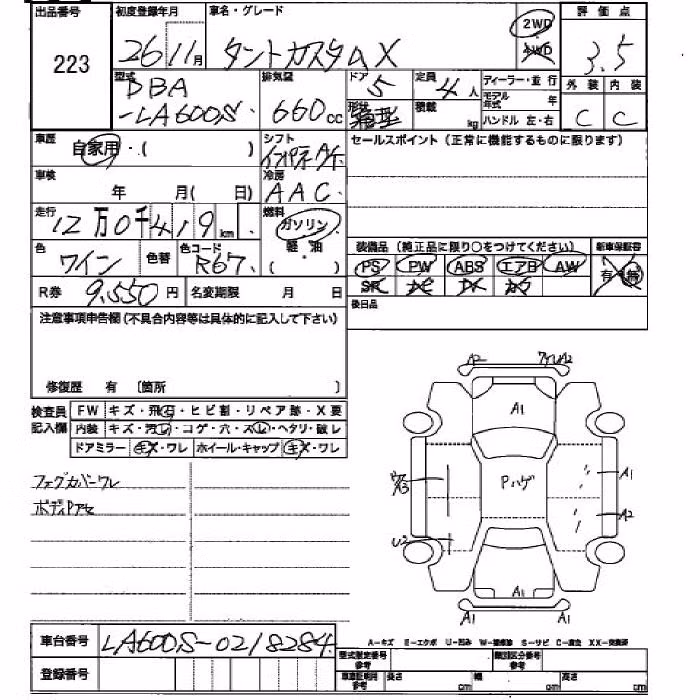 出品番号 初度登録年月 車名・グレード 評価点
223 26 11月 タントカスタムX 2WD 4WD 3.5
型式 排気量 ドア 定員 ディーラー・並行 外装 内装
DBA 5 4人 モデル年式 年
-LA600S 660cc 形状 箱型 積載 kg ハンドル 左・右 C C
車歴 自家用・( ) シフト セールスポイント(正常に機能するものに限ります)
車検 年 月( 日) 冷房 AAC
走行 12万0千419km 燃料 ガソリン
軽油
( )
色 ワイン 色替 色コード R67 装備品(純正品に限り○をつけてください) 新車保証書
PS PW ABS エアB AW 有 無
SR ナビ
R券 9,550円 名変期限 月 日 後日品
注意事項申告欄(不具合内容等は具体的に記入して下さい)
修復歴 有 〔箇所 〕
検査員記入欄 FW キズ・飛石・ヒビ割・リペア跡・X要
内装 キズ・汚レ・コゲ・穴・スレ・ヘタリ・破レ
ドアミラー キズ・ワレ ホイール・キャップ キズ・ワレ
フォグカバーワレ
ボディPアセ
A2 A2
A1
Pハゲ
A1
A2
U2
A1
A1 A1
車台番号 LA600S-0218284
登録番号
A-キズ E-エクボ U-凹み W-補修跡 S-サビ C-腐食 XX-交換済
型式指定番号参考 類別区分番号参考
車庫証明用参考 長さ cm 幅 cm 高さ cm